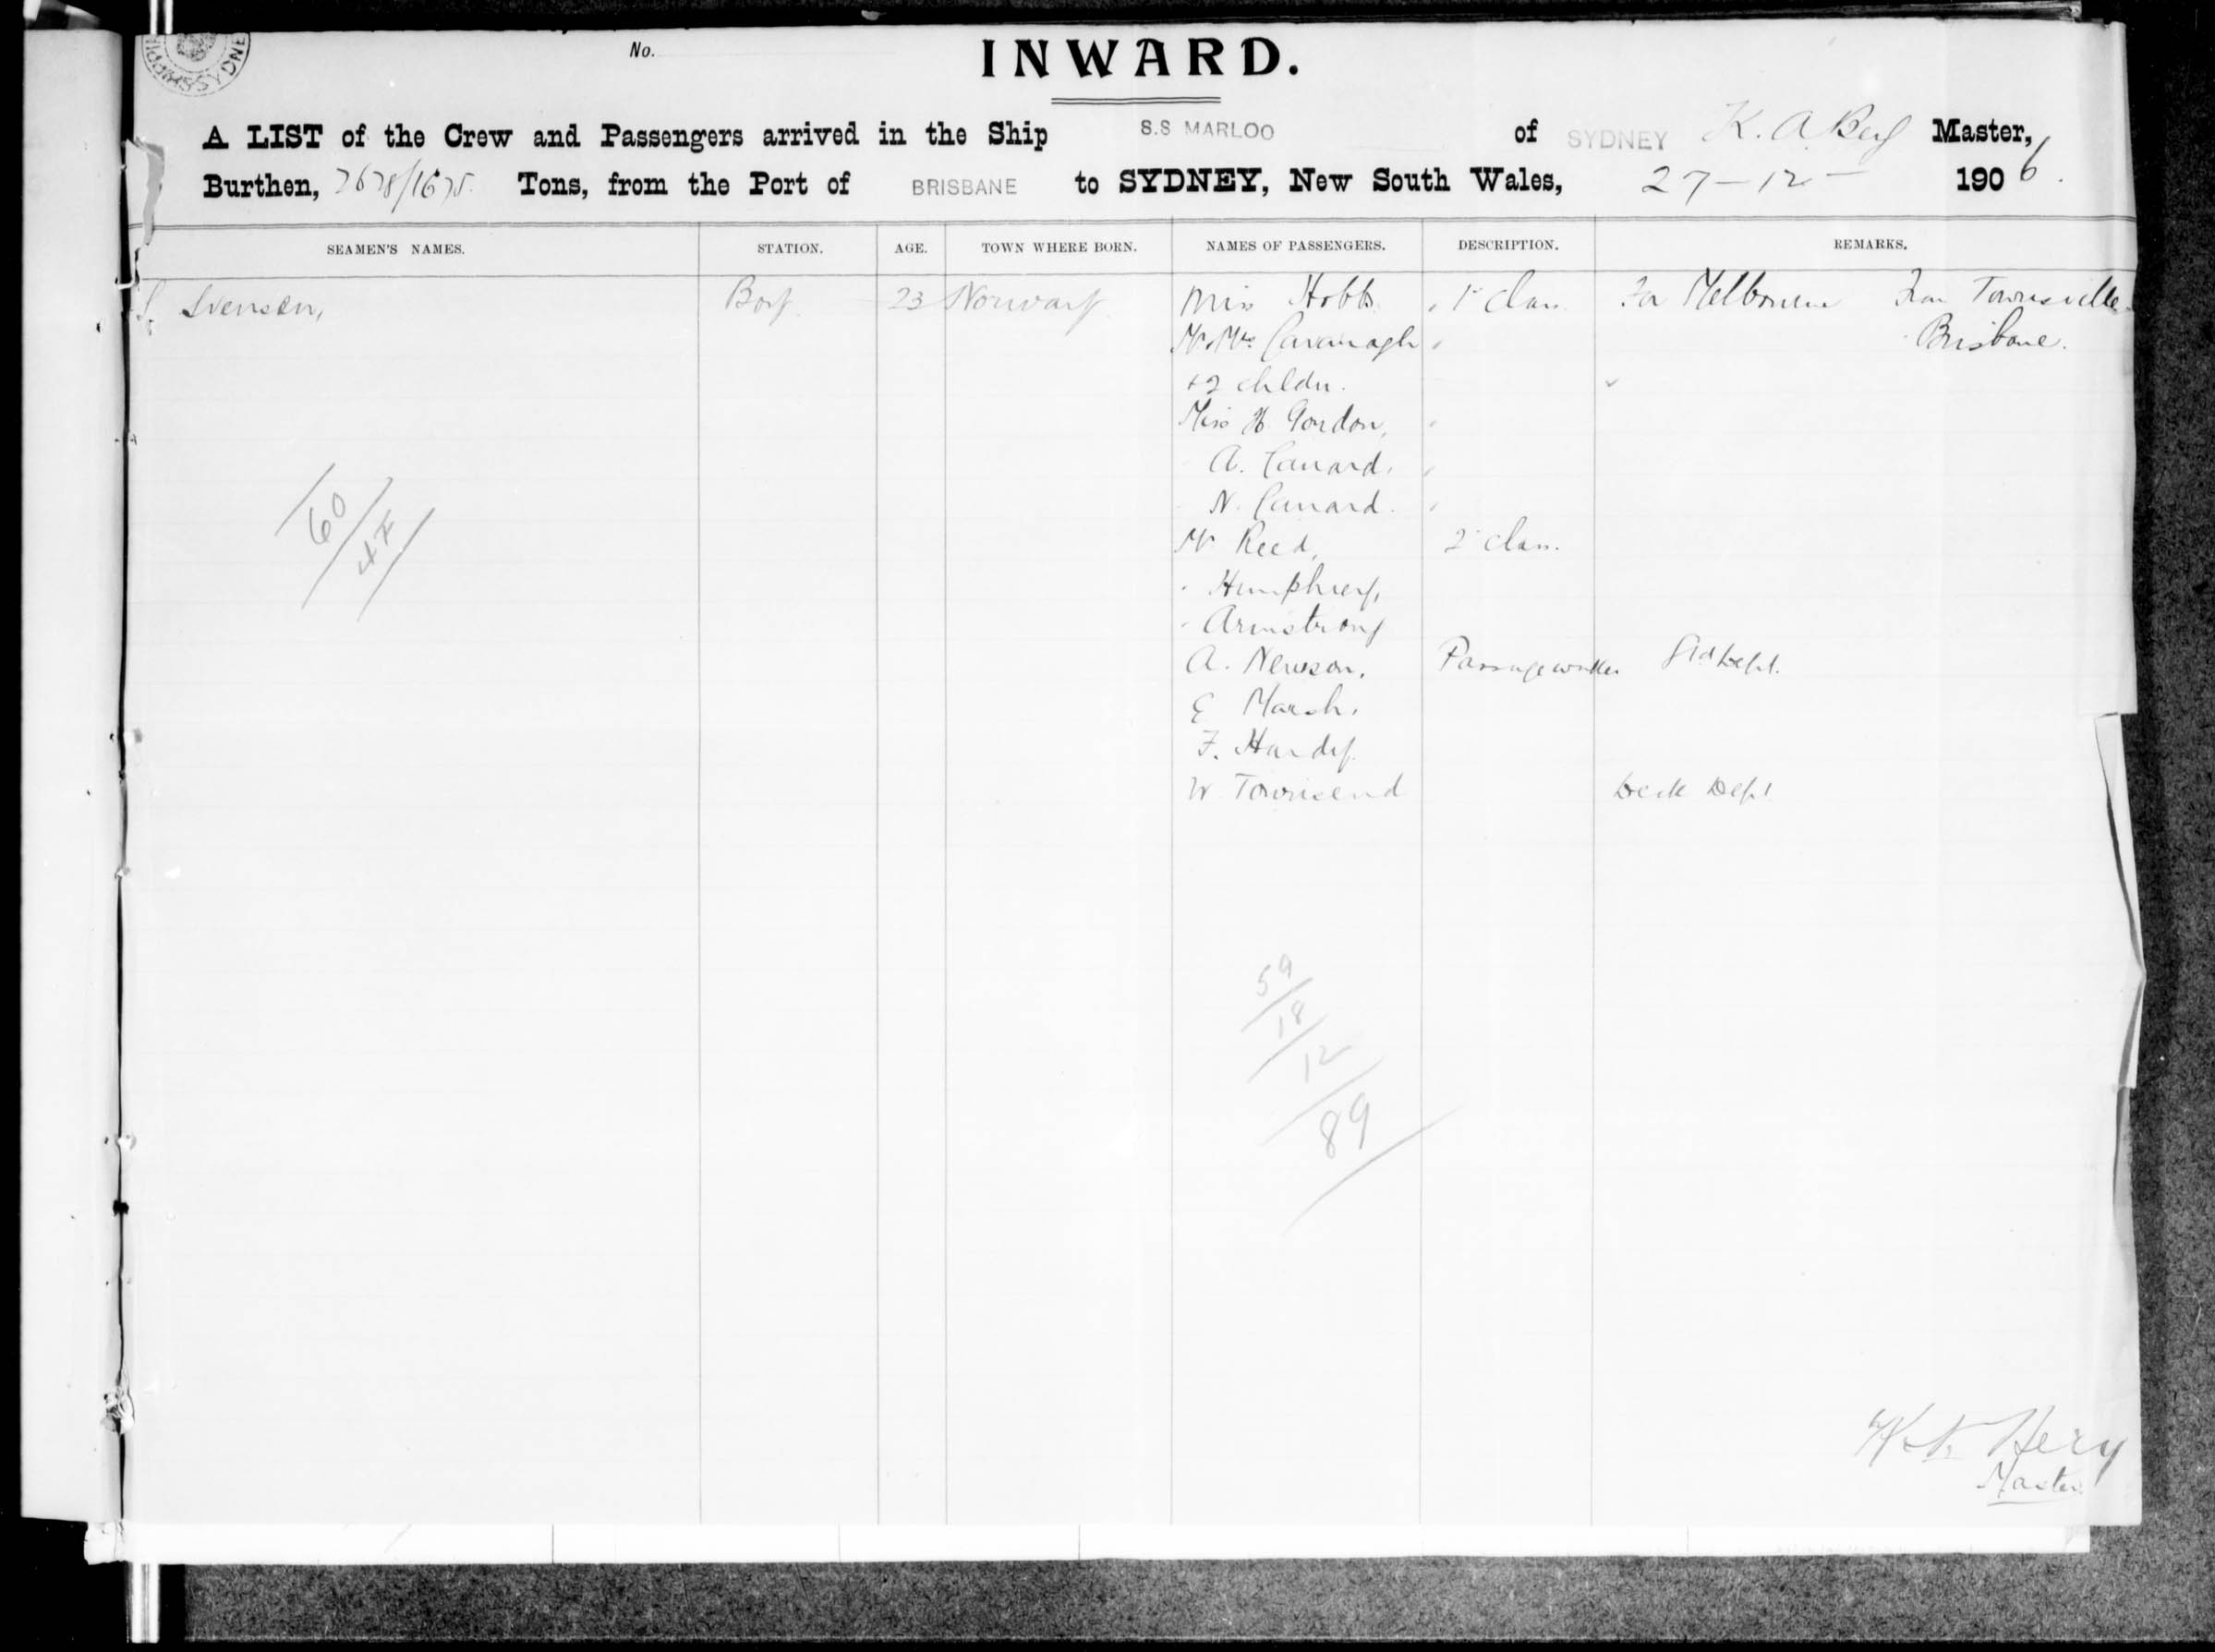 SHIPPING SYDNE
No.
INWARD.
A LIST of the Crew and Passengers arrived in the Ship S.S MARLOO of SYDNEY K. A. Berg Master,
Burthen, 2628/1675 Tons, from the Port of BRISBANE to SYDNEY, New South Wales, 27-12- 1906.
SEAMEN'S NAMES. STATION. AGE. TOWN WHERE BORN. NAMES OF PASSENGERS. DESCRIPTION. REMARKS.
Svensen, Boy 23 Norway Miss Hobbs 1st Class For Melbourne From Townsville
Mr. Mrs. Cavanagh Brisbane.
+2 childn.
Miss H Gordon,
A. Cunard.
N. Cunard.
Mr Reed, 2 Class.
Humphrey,
Armstrong
A. Newson. Passageworker Std Dept.
E Marsh.
F. Hardy.
W Townsend Deck Dept
60
59
18
12
89
Berg
Master